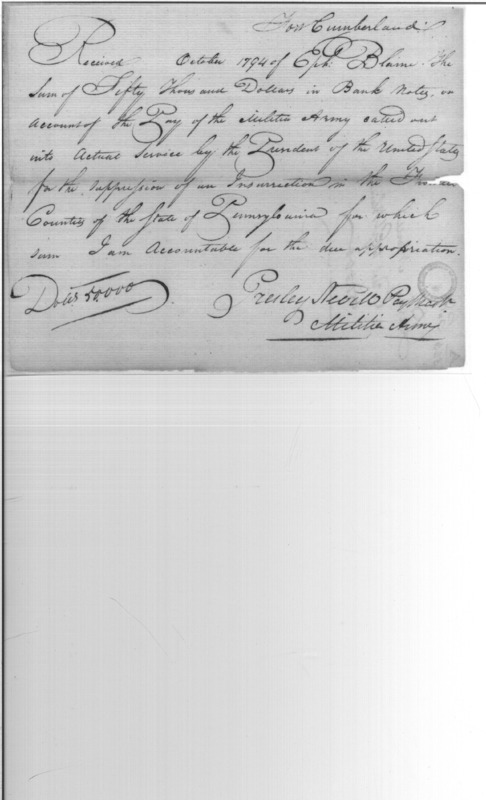 Fort Cumberland
Received October 1794 of Eph. Blaine the
Sum of Fifty Thousand Dollars in Bank Notes, on
Account of the Pay of the Militia Army called out
into Actual Service by the President of the United States
for the suppression of an Insurrection in the
Counties of the State of Pennsylvania for which
sum I am Accountable for the due appropriation.
Dolls 50,000
Presley Nevill Pay Mastr
Militia Army